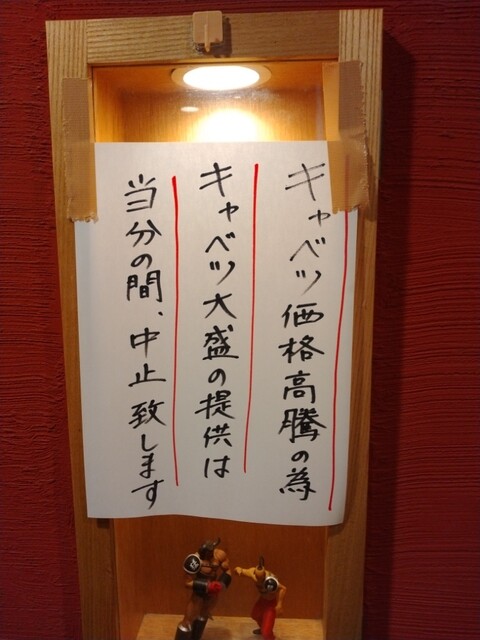 キャベツ価格高騰の為
キャベツ大盛の提供は
当分の間、中止致します